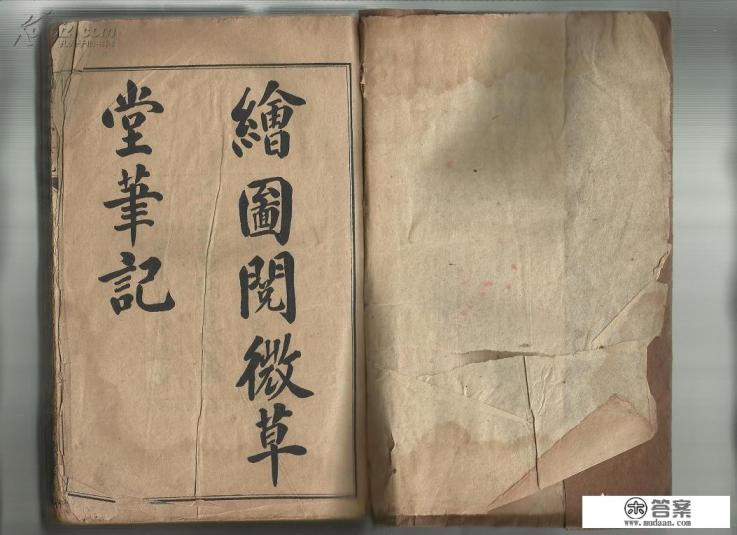 繪圖閱微草
堂筆記
答案
www.mudaan.com